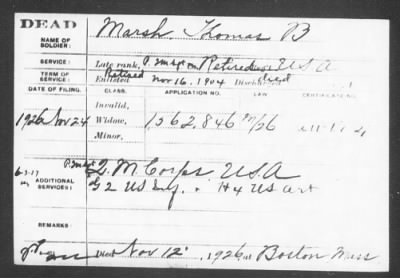 DEAD
NAME OF SOLDIER: Marsh, Thomas B
SERVICE: Late rank, Retired U.S.A
TERM OF SERVICE: Enlisted Retired Nov 16, 1904 Discharged died
DATE OF FILING. CLASS. APPLICATION NO. LAW CERTIFICATE NO.
Invalid,
1926 Nov 24 Widow, 1,562,846
Minor,
ADDITIONAL SERVICES: Q. M. Corps U.S.A
G 2 US Inf. & H 4 US Art
REMARKS:
Died Nov 12, 1926 at Boston Mass